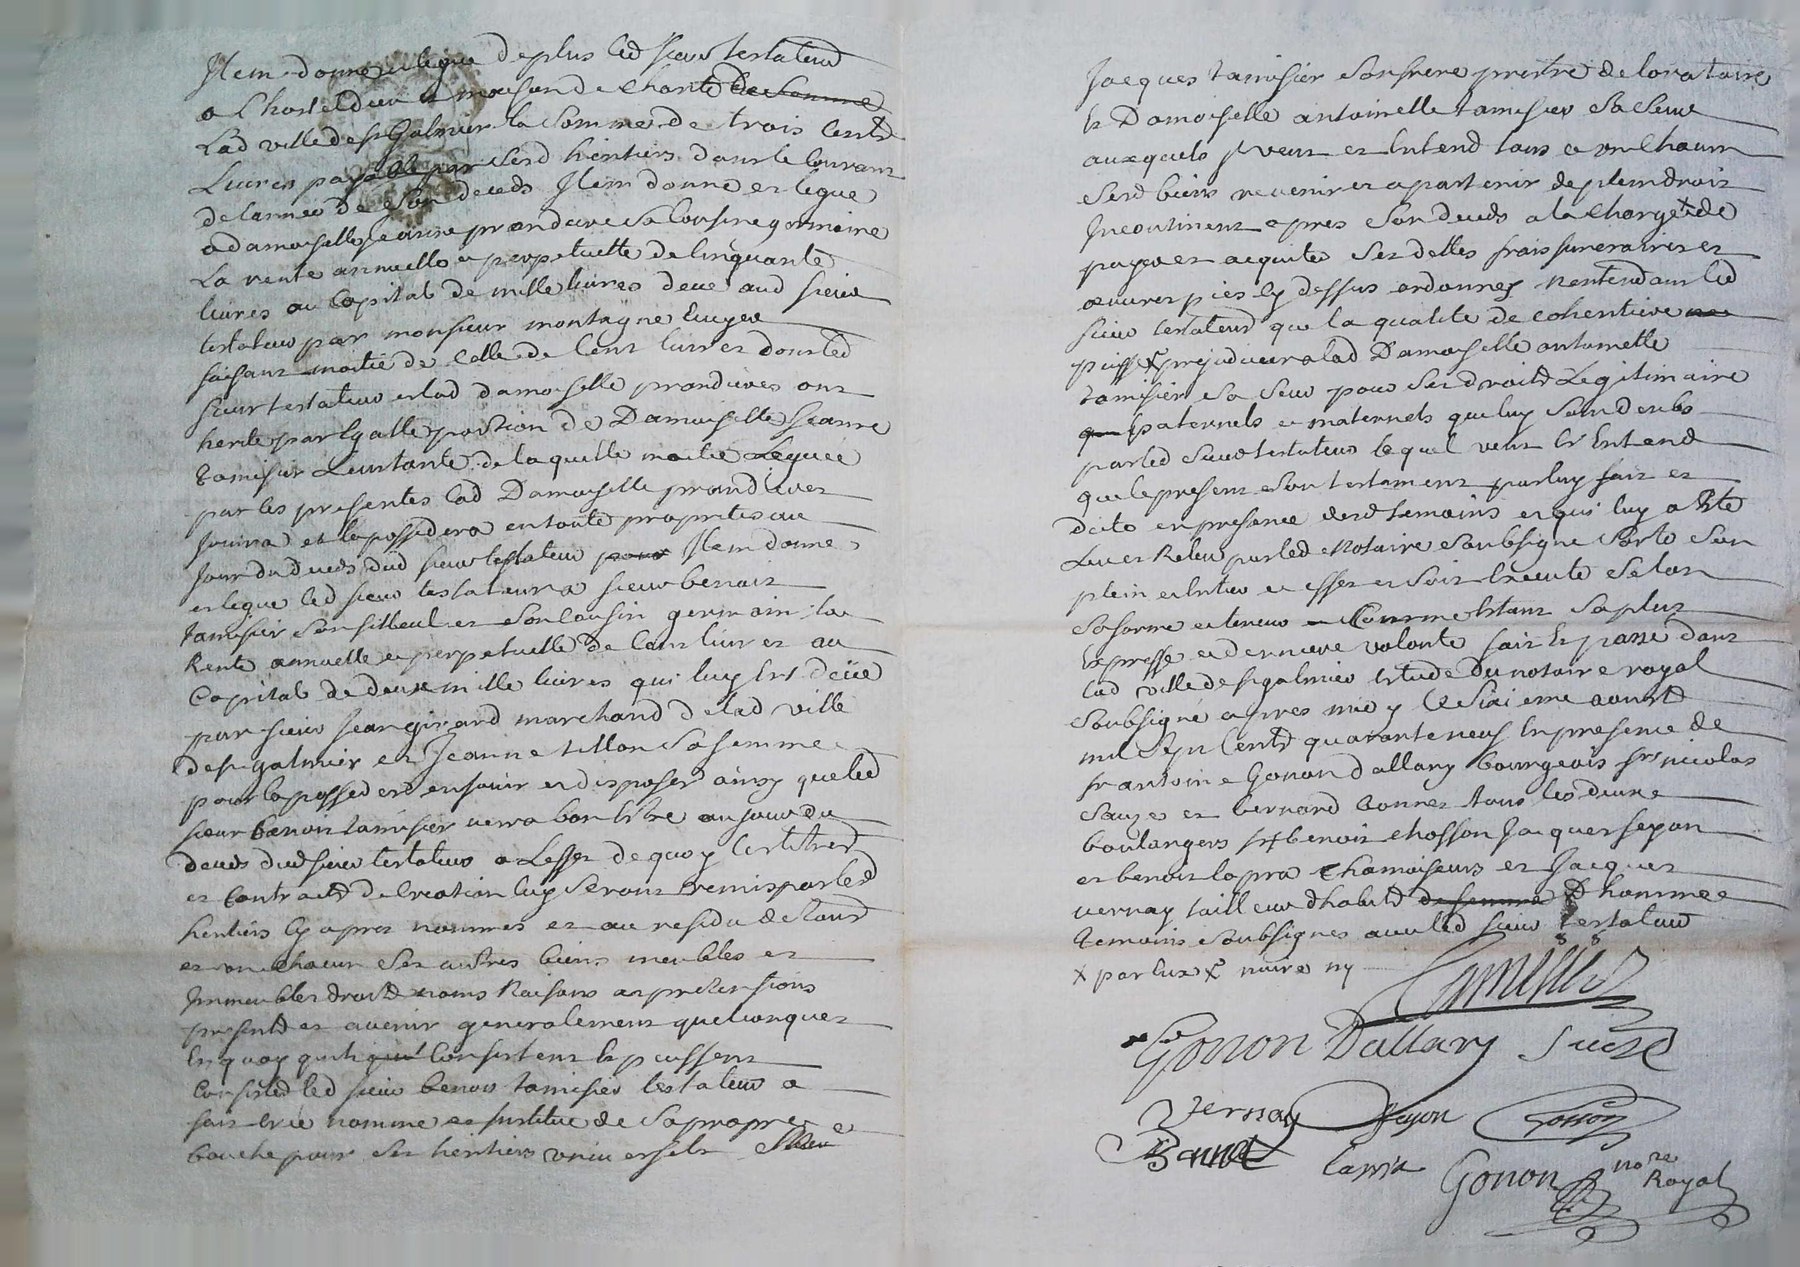 Item donne et legue de plus led sieur testateur
a Lhostel dieu et maison de charité de somme
Lad ville de st Galmier la somme de trois cents
Livres payable par sesd heritiers dans le courant
de lannee de son deceds Item donne et legue
a damoiselle jeanne prandiere sa cousine germaine
La rente annuelle et perpetuelle de cinquante
livres au capital de mille livres deue aud sieur
testateur par monsieur montagne Ecuyer
faisant moitié de celle de cent livres dont led
sieur testateur et lad damoiselle prandieres ont
herité par Egalle portion de Damoiselle jeanne
tamisier Leur tante de laquelle moitié Leguée
par les presentes lad Damoiselle prandiere
jouira et la possedera en toute proprieté au
jour du deceds dud sieur testateur pour Item donne
et legue led sieur testateur a sieur benoit
tamisier son filleul et son cousin germain la
Rente annuelle et perpetuelle de cent livres au
capital de deux mille livres qui luy Est deüe
par sieur jean girard marchand de lad ville
de st galmier et jeanne tillon sa femme
pour la posseder en jouir et disposer ainsy que led
sieur benoit tamisier verra bon Estre au jour du
deceds dud sieur testateur a Leffet de quoy les titres
et contracts de creation luy seront remis par lesd
heritiers cy apres nommes et au residu de tous
et un chacun ses autres biens meubles et
Immeubles droits noms Raisons et pretensions
presents et avenir generalement quelconques
En quoy quils qui consistent Et puissent
consister led sieur benoit tamisier testateur a
fait cree nomme et institue de sa propre
bouche pour ses heritiers universels
jacques tamisier son frere prestre de loratoire
Et Damoiselle antoinette tamisier sa seur
auxquels il veut et Entend tous et un chacun
sesd biens revenir et apartenir de plein droit
Incontinent apres son deceds a la charge x de
payer et acquiter ses dettes frais funeraires et
œuvres pies cy dessus ordonnes Nentendant led
sieur testateur que la qualité de coheritiere
puisse x prejudicier a lad Damoiselle antoinette
tamisier sa seur pour ses droits Legitimaire
que paternels et maternels que luy sont deubs
par led sieur testateur lequel veut Et Entend
que le present son testament par luy fait et
dicté en presance desd temoins et qui luy a Esté
Lu et Relu par led Notaire soubsigné sorte son
plein et Entier et effet et soit Executé selon
sa forme et teneur comme Etant sa plus
Expresse et derniere volonté fait Et passé dans
lad ville de st galmier Etude du notaire royal
soubsigné apres midy le sixieme aoust
mil sept cents quarante neuf En presence de
sr antoine Gonon dallary bourgeois srs nicolas
sauze et bernard bonnet tous les deux
boulangers sr benoit chosson jacques peyon
et benoit lapra chamoiseurs et jacques
vernay tailleur dhabits de femme D hommes
temoins soubsignes avec led sieur testateur
x par eux x nuire ny
Tamisier
Gonon Dallary Sauze
Vernay Peyon Chosson
Bonnet Lapra Gonon nore
Royal